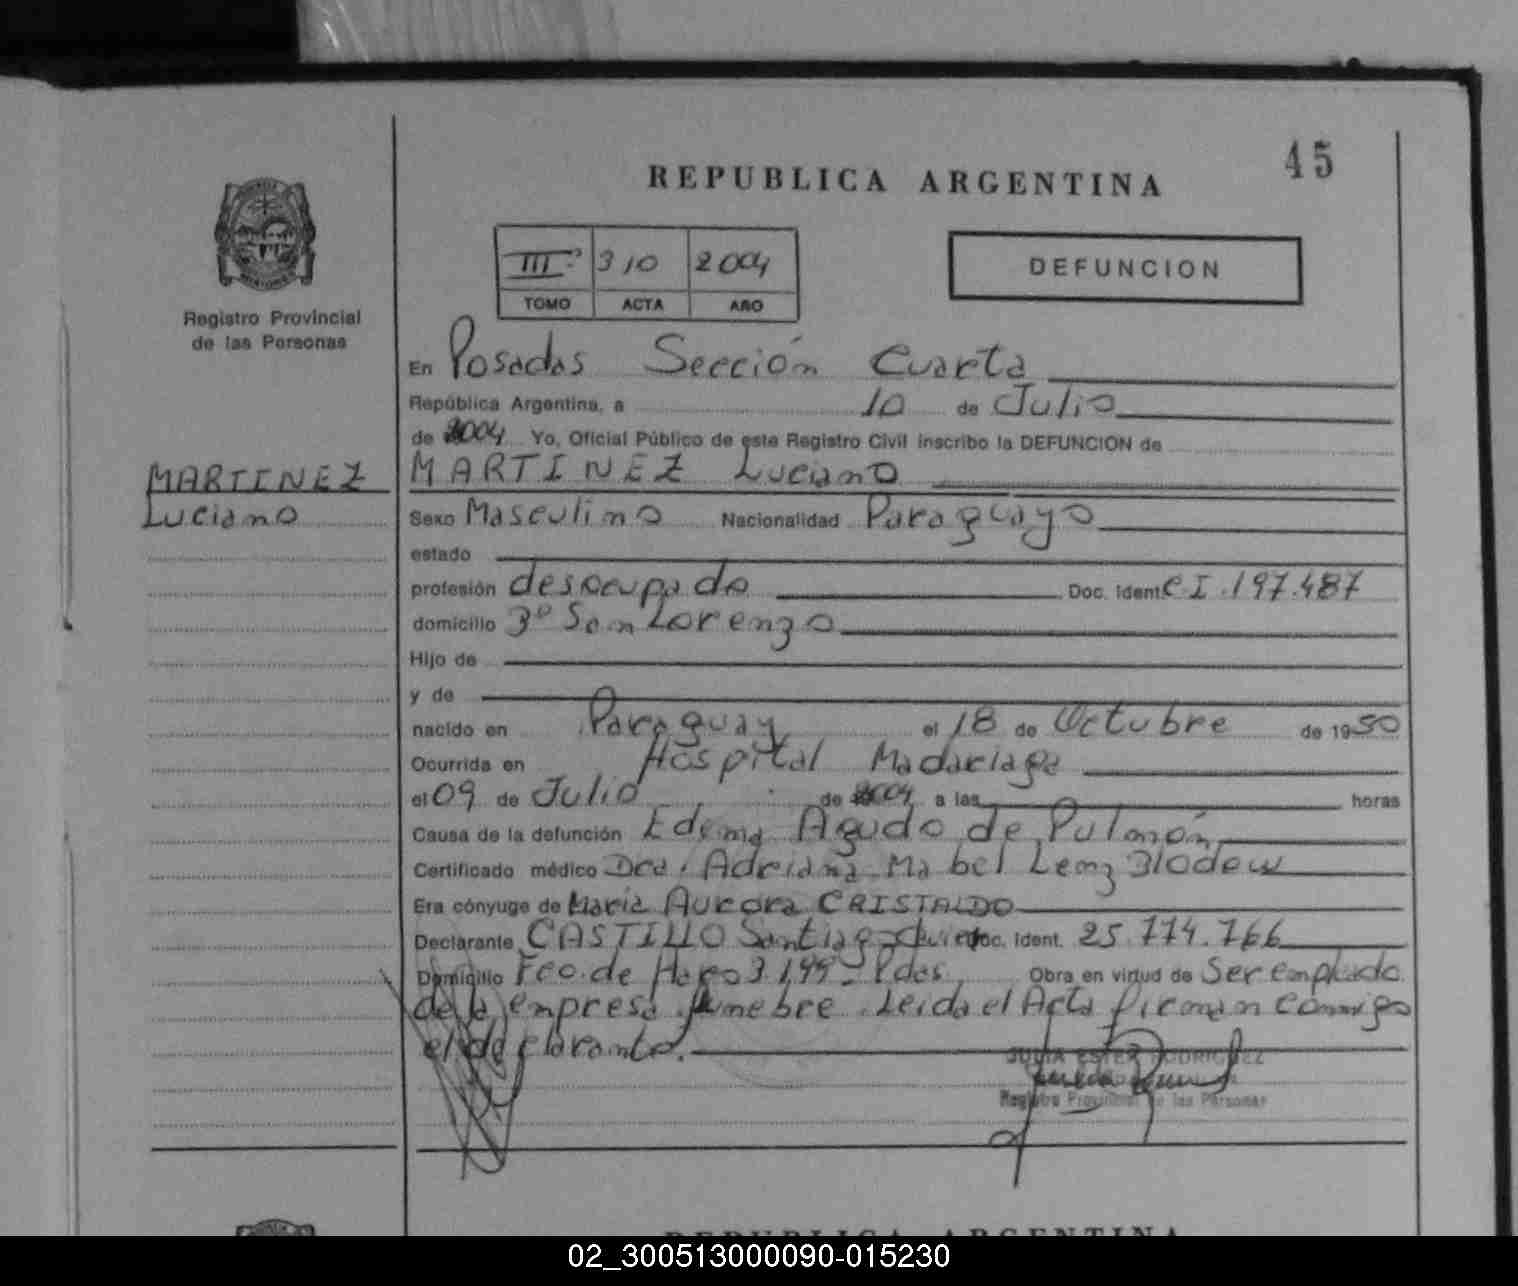 45
REPUBLICA ARGENTINA
III 310 2004
TOMO ACTA AÑO
DEFUNCION
Registro Provincial
de las Personas
En Posadas Sección Cuarta
República Argentina, a 10 de Julio
de 2004 Yo, Oficial Público de este Registro Civil inscribo la DEFUNCION de
MARTINEZ
Luciano
MARTINEZ Luciano
Sexo Masculino Nacionalidad Paraguayo
estado
profesión desocupado Doc. Ident. C.I. 197.487
domicilio 3º San Lorenzo
Hijo de
y de
nacido en Paraguay el 18 de Octubre de 1950
Ocurrida en Hospital Madariaga
el 09 de Julio de 2004 a las horas
Causa de la defunción Edema Agudo de Pulmón
Certificado médico Dra. Adriana Mabel Lenz Blodow
Era cónyuge de María Aurora CRISTALDO
Declarante CASTILLO Santiago Javier Doc. Ident. 25.774.766
Domicilio Fco. de Haro 3.199 - Pdas. Obra en virtud de Ser empleado
de la empresa funebre. Leida el Acta firman conmigo
el declarante.
JULIA ESTER RODRIGUEZ
Registro Provincial de las Personas
REPUBLICA ARGENTINA
02_300513000090-015230